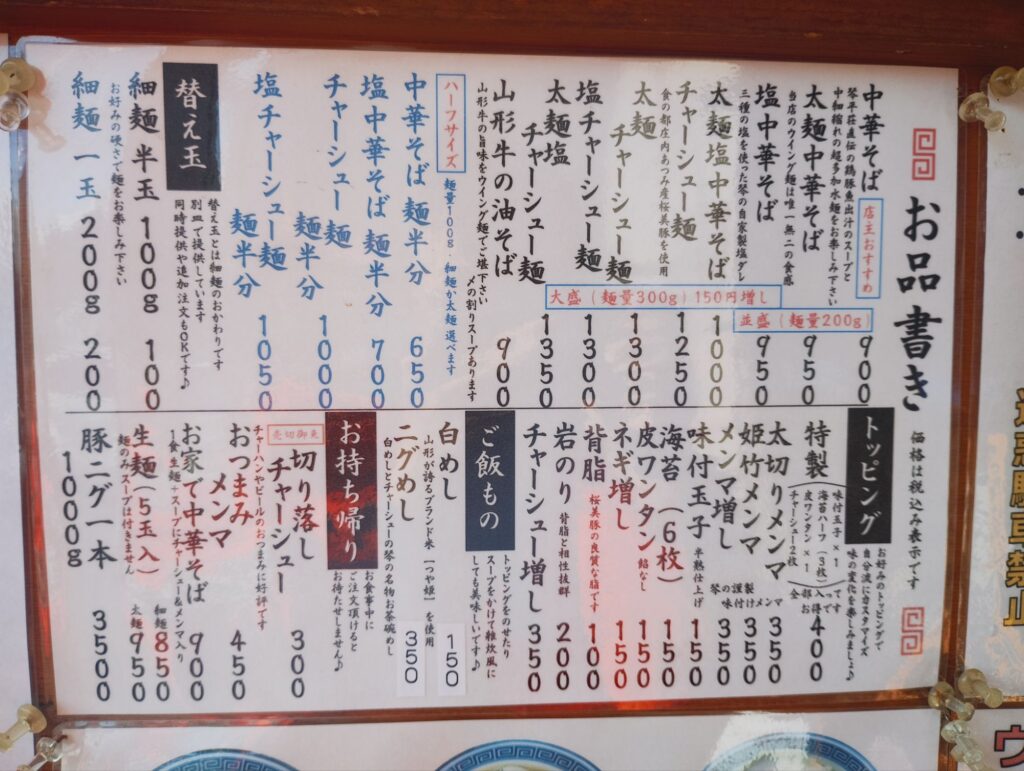 お品書き
価格は税込み表示です
中華そば 900
店主おすすめ
琴平荘直伝の鶏豚魚出汁のスープと
中細縮れの超多加水麺をお楽しみ下さい
太麺中華そば 950
当店のウイング麺は唯一無二の食感
塩中華そば 950
三種の塩を使った琴の自家製塩ダレ
並盛(麺量200g)
大盛(麺量300g)150円増し
太麺塩中華そば 1000
チャーシュー麺 1250
食の都庄内あつみ産桜美豚を使用
太麺
チャーシュー麺 1300
塩チャーシュー麺 1300
太麺塩
チャーシュー麺 1350
山形牛の油そば 900
山形牛の旨味をウイング麺でご堪下さい
〆の割りスープあります
ハーフサイズ
麺量100g・細麺か太麺選べます
中華そば 麺半分 650
塩中華そば 麺半分 700
チャーシュー麺
麺半分 1000
塩チャーシュー麺
麺半分 1050
替え玉
替え玉とは細麺のおかわりです
別皿で提供しています
同時提供や追加注文もOKです♪
細麺 半玉 100g 100
お好みの硬さで麺をお楽しみ下さい
細麺 一玉 200g 200
トッピング
お好みのトッピングで
自分流にカスタマイズ
味の変化を楽しみましょ♪
特製 400
味付玉子×1
海苔ハーフ(3枚)
皮ワンタン×1
チャーシュー2枚
太切りメンマ 350
姫竹メンマ 350
メンマ増し 350
琴の謹製
味付けメンマ
味付玉子 150
半熟仕上げ
海苔(6枚) 150
皮ワンタン 150
餡なし
ネギ増し 150
背脂 100
桜美豚の良質な脂です
岩のり 200
背脂と相性抜群
チャーシュー増し 350
ご飯もの
トッピングをのせたり
スープをかけて雑炊風に
しても美味しいです♪
白めし 150
山形が誇るブランド米「つや姫」を使用
ニグめし 350
白めしとチャーシューの琴の名物お茶碗めし
お持ち帰り
お食事中に
ご注文頂けると
お待たせしません♪
売切御免
切り落し
チャーシュー 300
チャーハンやビールのおつまみに好評です
おつまみ
メンマ 450
お家で中華そば 900
1食生麺・スープにチャーシュー&メンマ入り
生麺(5玉入)
細麺 850
太麺 950
麺のみスープは付きません
豚ニグ一本
1000g 3500